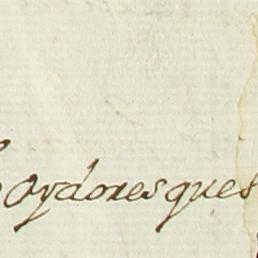 oydores ques